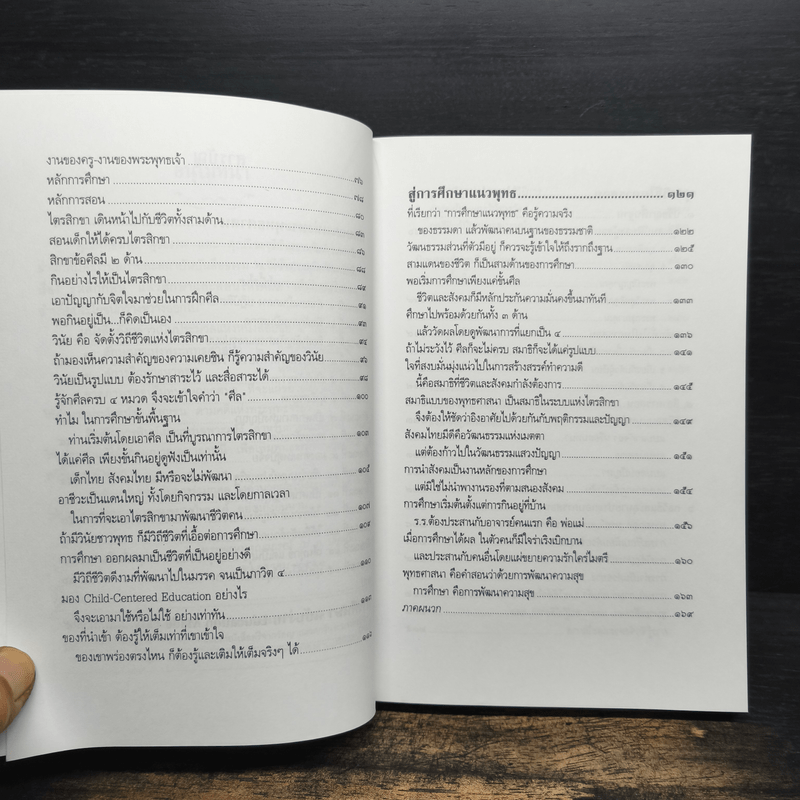 งานของครู-งานของพระพุทธเจ้า ๗๖
หลักการศึกษา ๗๘
หลักการสอน ๘๐
ไตรสิกขา เดินหน้าไปกับชีวิตทั้งสามด้าน ๘๓
สอนเด็กให้ได้ครบไตรสิกขา ๘๖
สิกขาข้อศีลมี ๒ ด้าน ๘๘
กินอย่างไรให้เป็นไตรสิกขา ๘๙
เอาปัญญากับจิตใจมาช่วยในการฝึกศีล ๙๑
พอกินอยู่เป็น..ก็คิดเป็นเอง ๙๓
วินัย คือ จัดตั้งวิถีชีวิตแห่งไตรสิกขา ๙๔
ถ้ามองเห็นความสำคัญของความเคยชิน ก็รู้ความสำคัญของวินัย ๙๖
วินัยเป็นรูปแบบ ต้องรักษาสาระไว้ และสื่อสาระได้ ๙๘
รู้จักศีลครบ ๔ หมวด จึงจะเข้าใจคำว่า "ศีล" ๑๐๐
ทำไม ในการศึกษาขั้นพื้นฐาน
ท่านเริ่มต้นโดยเอาศีล เป็นที่บูรณาการไตรสิกขา ๑๐๓
ได้แค่ศีล เพียงขั้นกินอยู่ดูฟังเป็นเท่านั้น
เด็กไทย สังคมไทย มีหรือจะไม่พัฒนา ๑๐๕
อาชีวะเป็นแดนใหญ่ ทั้งโดยกิจกรรม และโดยกาลเวลา
ในการที่จะเอาไตรสิกขามาพัฒนาชีวิตคน ๑๐๗
ถ้ามีวินัยชาวพุทธ ก็มีวิถีชีวิตที่เอื้อต่อการศึกษา ๑๐๙
การศึกษา ออกผลมาเป็นชีวิตที่เป็นอยู่อย่างดี
มีวิถีชีวิตดีงามที่พัฒนาไปในมรรค จนเป็นภาวิต ๔ ๑๑๐
มอง Child-Centered Education อย่างไร
จึงจะเอามาใช้หรือไม่ใช้ อย่างเท่าทัน ๑๑๓
ของที่นำเข้า ต้องรู้ให้เต็มเท่าที่เขาเข้าใจ
ของเขาพร่องตรงไหน ก็ต้องรู้และเติมให้เต็มจริงๆ ได้ ๑๑๖
สู่การศึกษาแนวพุทธ ๑๒๑
ที่เรียกว่า "การศึกษาแนวพุทธ" คือรู้ความจริง
ของธรรมดา แล้วพัฒนาคนบนฐานของธรรมชาติ ๑๒๒
วัฒนธรรมส่วนที่ตัวมีอยู่ ก็ควรจะรู้เข้าใจให้ถึงรากถึงฐาน ๑๒๕
สามแดนของชีวิต ก็เป็นสามด้านของการศึกษา ๑๓๐
พอเริ่มการศึกษาเพียงแค่ขั้นศีล
ชีวิตและสังคมก็มีหลักประกันความมั่นคงขึ้นมาทันที ๑๓๓
ศึกษาไปพร้อมด้วยกันทั้ง ๓ ด้าน
แล้ววัดผลโดยดูพัฒนาการที่แยกเป็น ๔ ๑๓๖
ถ้าไม่ระวังไว้ ศีลก็จะไม่ครบ สมาธิก็จะได้แค่รูปแบบ ๑๔๑
ใจที่สงบมั่นมุ่งแน่วไปในการสร้างสรรค์ทำความดี
นี้คือสมาธิที่ชีวิตและสังคมกำลังต้องการ ๑๔๕
สมาธิแบบของพุทธศาสนา เป็นสมาธิในระบบแห่งไตรสิกขา
จึงต้องให้ชัดว่าอิงอาศัยไปด้วยกันกับพฤติกรรมและปัญญา ๑๔๙
สังคมไทยมีดีคือวัฒนธรรมแห่งเมตตา
แต่ต้องก้าวไปในวัฒนธรรมแสวงปัญญา ๑๕๑
การนำสังคมเป็นงานหลักของการศึกษา
แต่มิใช่ไม่นำพางานรองที่ตามสนองสังคม ๑๕๔
การศึกษาเริ่มต้นตั้งแต่การกินอยู่ที่บ้าน
ร.ร.ต้องประสานกับอาจารย์คนแรก คือ พ่อแม่ ๑๕๖
เมื่อการศึกษาได้ผล ในตัวคนก็มีใจร่าเริงเบิกบาน
และประสานกับคนอื่นโดยแผ่ขยายความรักใคร่ไมตรี ๑๖๐
พุทธศาสนา คือคำสอนว่าด้วยการพัฒนาความสุข
การศึกษา คือการพัฒนาความสุข ๑๖๓
ภาคผนวก ๑๖๙